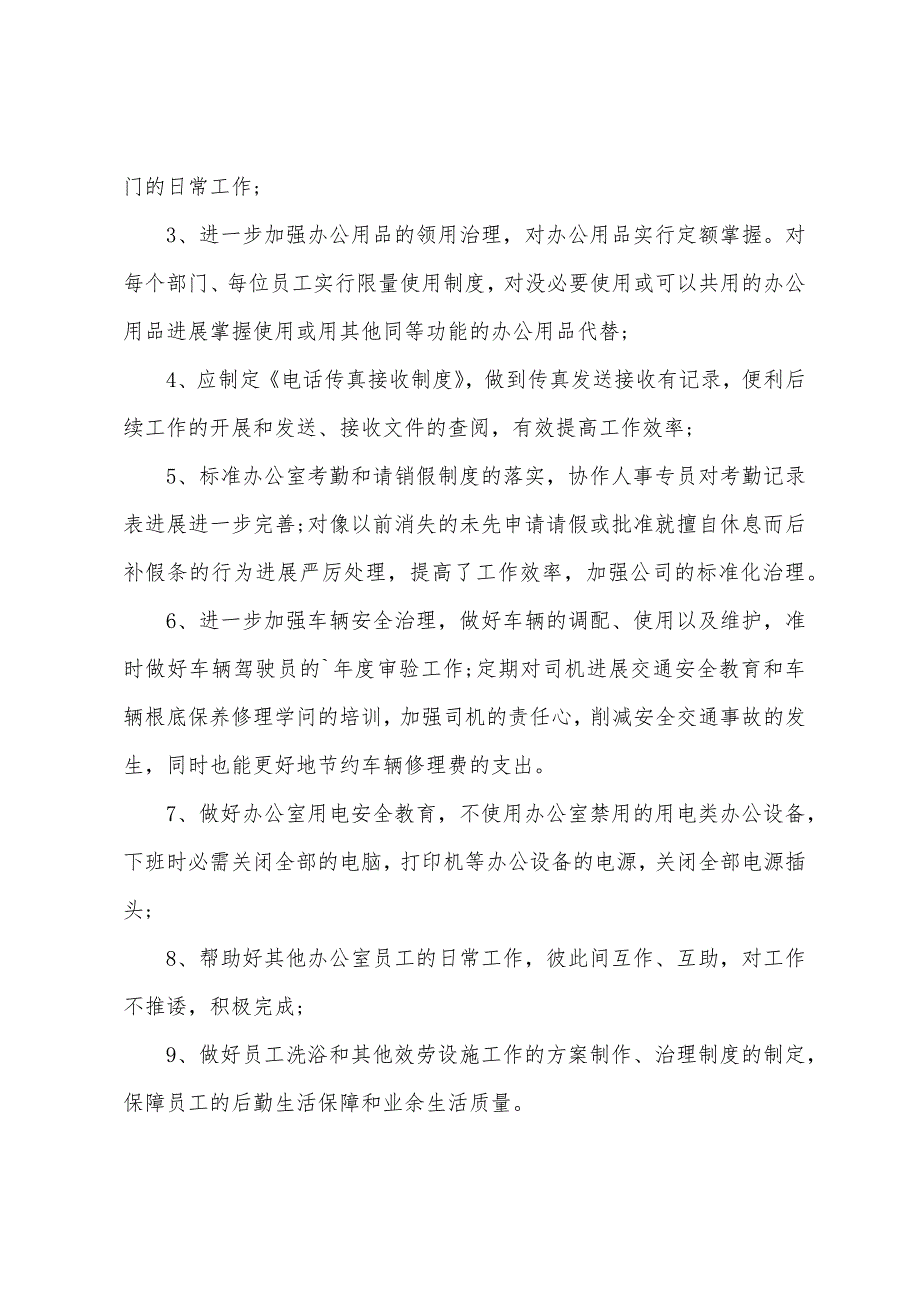 门的日常工作;
3、进一步加强办公用品的领用治理，对办公用品实行定额掌握。对
每个部门、每位员工实行限量使用制度，对没必要使用或可以共用的办公
用品进展掌握使用或用其他同等功能的办公用品代替;
4、应制定《电话传真接收制度》，做到传真发送接收有记录，便利后
续工作的开展和发送、接收文件的查阅，有效提高工作效率;
5、标准办公室考勤和请销假制度的落实，协作人事专员对考勤记录
表进展进一步完善;对像以前消失的未先申请请假或批准就擅自休息而后
补假条的行为进展严厉处理，提高了工作效率，加强公司的标准化治理。
6、进一步加强车辆安全治理，做好车辆的调配、使用以及维护，准
时做好车辆驾驶员的`年度审验工作;定期对司机进展交通安全教育和车
辆根底保养修理学问的培训，加强司机的责任心，削减安全交通事故的发
生，同时也能更好地节约车辆修理费的支出。
7、做好办公室用电安全教育，不使用办公室禁用的用电类办公设备，
下班时必需关闭全部的电脑，打印机等办公设备的电源，关闭全部电源插
头;
8、帮助好其他办公室员工的日常工作，彼此间互作、互助，对工作
不推诿，积极完成;
9、做好员工洗浴和其他效劳设施工作的方案制作、治理制度的制定，
保障员工的后勤生活保障和业余生活质量。